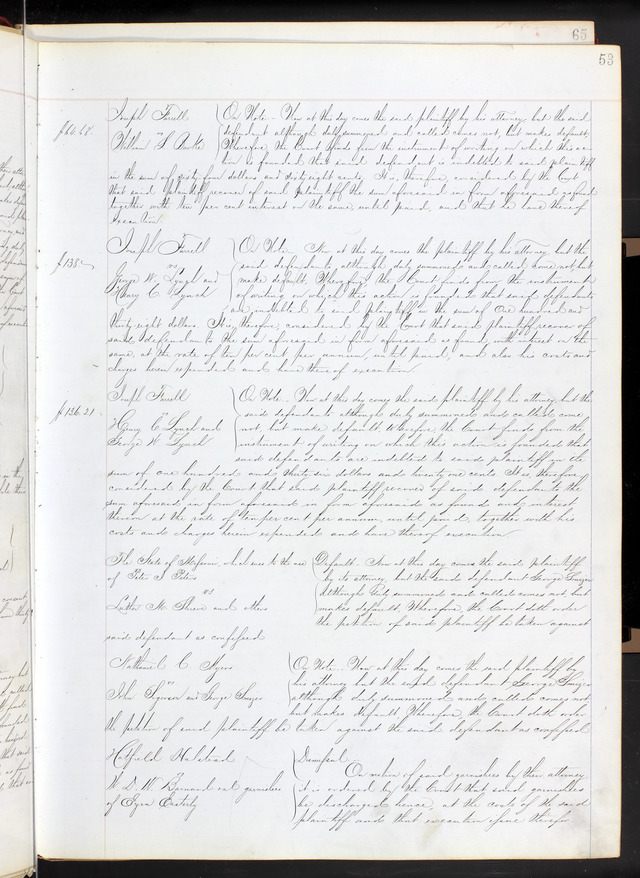 65
53
Joseph Farrell On Note. Now at this day comes the said plaintiff by his attorney, but the said
$64.68. vs defendant although duly summoned and called comes not, but makes default;
William S. Wherefore, the Court finds from the instrument of writing on which this ac-
tion is founded that said defendant is indebted to said plaintiff
in the sum of sixty four dollars and sixty eight cents, It is, therefore, considered by the Court
that said plaintiff recover of said plaintiff the sum aforesaid in form aforesaid as found
together with ten per cent interest on the same, until paid, and that he have thereof
execution
Joseph Farrell On Note. Now at this day comes the plaintiff by his attorney, but the
$138. vs said defendants, although duly summoned and called come not, but
George W. Lynch and make default, Wherefore the Court finds from the instrument
Mary C. Lynch of writing on which this action is founded that said defendants
are indebted to said plaintiff in the sum of One hundred and
thirty eight dollars. It is, therefore, considered by the Court that said plaintiff recover of
said defendants the sum aforesaid in form aforesaid as found, with interest on the
same at the rate of ten per cent per annum, until paid, and also his costs and
charges herein expended and have thereof execution.
Joseph Farrell On Note. Now at this day comes the said plaintiff by his attorney, but the
$136.21 vs said defendants although duly summoned and called come
C. Lynch and not, but make default Wherefore, the Court finds from the
George W. Lynch instrument of writing on which this action is founded that
said defendants are indebted to said plaintiff in the
sum of one hundred and thirty six dollars and twenty one cents It is therefore,
considered by the Court that said plaintiff recover of said defendants the
sum aforesaid in form aforesaid in form aforesaid as found and interest
thereon at the rate of ten per cent per annum, until paid, together with his
costs and charges herein expended and have thereof execution
The State of Missouri, which sues to the use Default. Now at this day comes the said plaintiff
of Peter S. Peters by its attorney, but the said defendant George
vs Although duly summoned and called comes not but
Luther M. and others makes default. Wherefore, the Court doth order
the petition of said plaintiff be taken against
said defendant as confessed
Nathaniel C. On Note. Now at this day comes the said plaintiff by
vs his attorney but the said defendant George
John and George although duly summoned and called comes not
but makes default. Wherefore, the Court doth order
the petition of said plaintiff be taken against the said defendant as confessed
Hatfield Halstead Dismissal
On motion of said garnishees by their attorney
W. D. W. Barnard et al garnishees it is ordered by the Court that said garnishees
of Ezra be discharged hence, at the costs of the said
plaintiff and that execution issue therefor